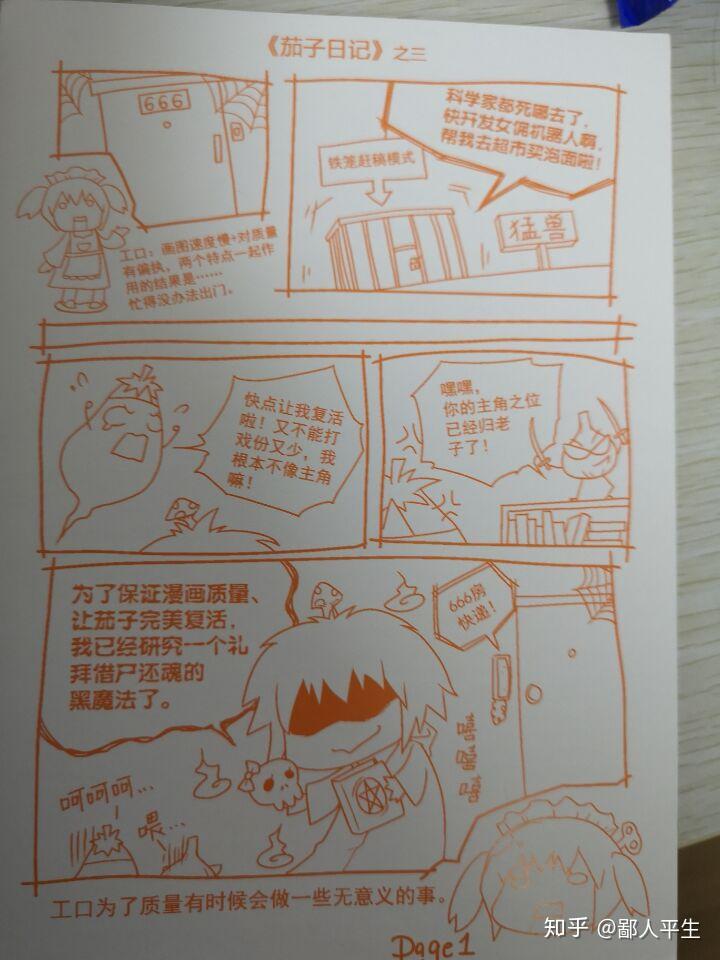 《茄子日记》之三
666
工口：画图速度慢+对质量
有偏执，两个特点一起作
用的结果是……
忙得没办法出门。
科学家都死哪去了，
快开发女佣机器人啊，
帮我去超市买泡面啦！
铁笼赶稿模式
猛兽
快点让我复活
啦！又不能打
戏份又少，我
根本不像主角
嘛！
嘿嘿，
你的主角之位
已经归老
子了！
为了保证漫画质量、
让茄子完美复活，
我已经研究一个礼
拜借尸还魂的
黑魔法了。
666房
快递！
嘻
嘻
嘻
呵呵呵…
喂…
工口为了质量有时候会做一些无意义的事。
Page1
知乎 @鄙人平生